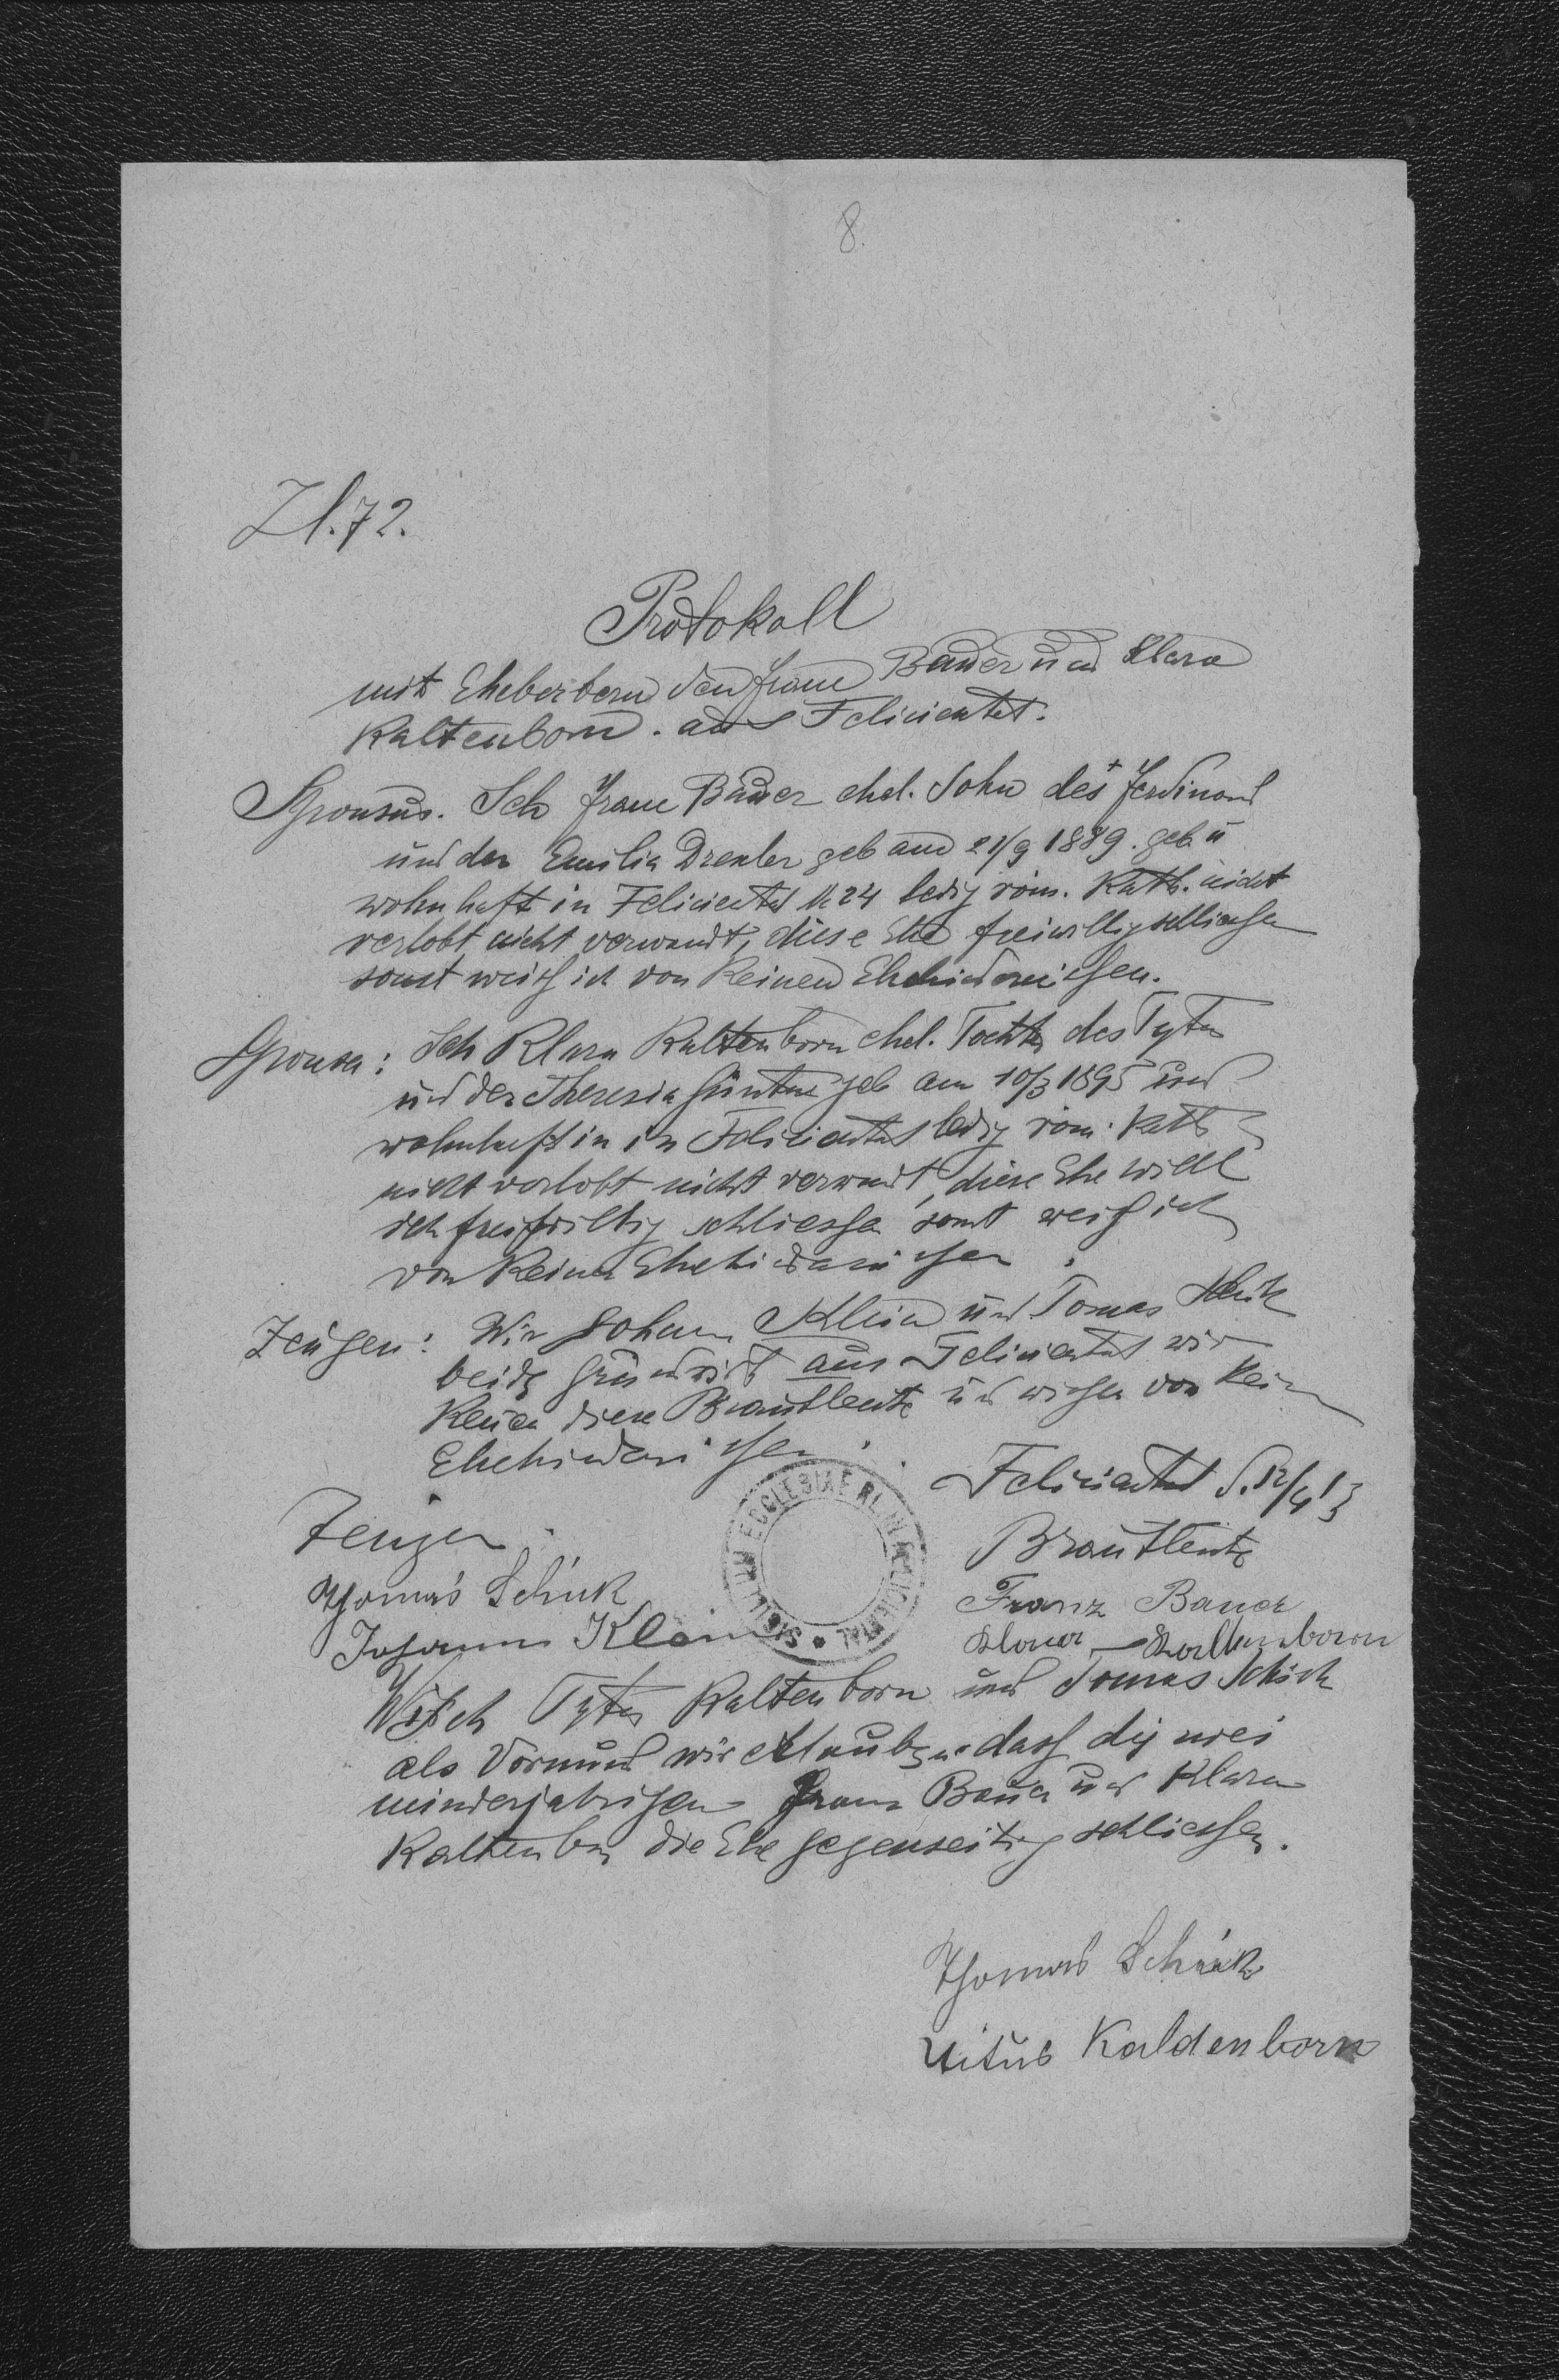 8.
Zl. 72.
Protokoll
mit Eheberbern den Franz Bauer und Klara
Kaltenborn. aus Felicientat.
Sponsus. Ich Franz Bauer ehel. Sohn des + Ferdinand
und der Emilia Drexler geb am 21/9 1889. geb u
wohnhaft in Felicientat N 24 ledig röm. Kath. nicht
verlobt, nicht verwandt, diese Ehe freiwillig schliessen
sonst weiss ich von Keinen Ehehindernissen.
Sponsa: Ich Klara Kaltenborn ehel. Tochter des Tytus
und der Theresia Günther geb am 10/3 1895 und
wohnhaft in in Felicientat ledig röm. Kath
nicht verlobt nicht verwandt, diese Ehe will
ich freiwillig schliessen sonst weiss ich
von Keinen Ehehindernissen.
Zeugen: Wir Johann Klein und Tomas Schick
beide Grundwirt aus Felicientat wir
Kenen diese Brautleute und wissen von Kein
Ehehindernissen.
Felicientat d. 12/4 13
Zeugen.
Brautleute
Thomas Schick
Franz Bauer
Johann Klein
Klara Kaltenborn
SIGILLUM ECCLESIAE R. LAT. FELICIENTAL
Tytus Kaltenborn und Tomas Schick
als Vormund wir erlauben dass die zwei
minderjahrigen Franz Bauer und Klara
Kaltenborn die Ehe gegenseitig schliessen.
Thomas Schick
Titus Kaldenborn